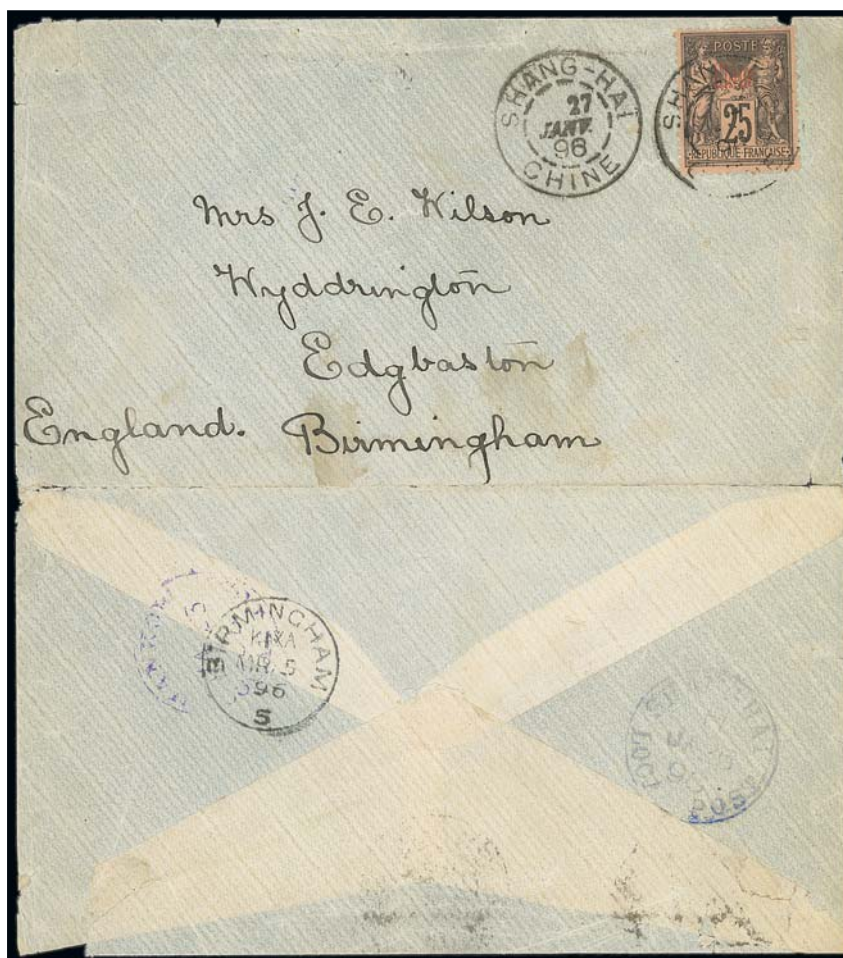 SHANG-HAI
27
JANV.
96
CHINE
POSTE
25
REPUBLIQUE FRANÇAISE
SHAN
Mrs J. E. Wilson
Wyddrington
Edgbaston
England. Birmingham
BIRMINGHAM
MR 5
96
S
LOCAL
POS